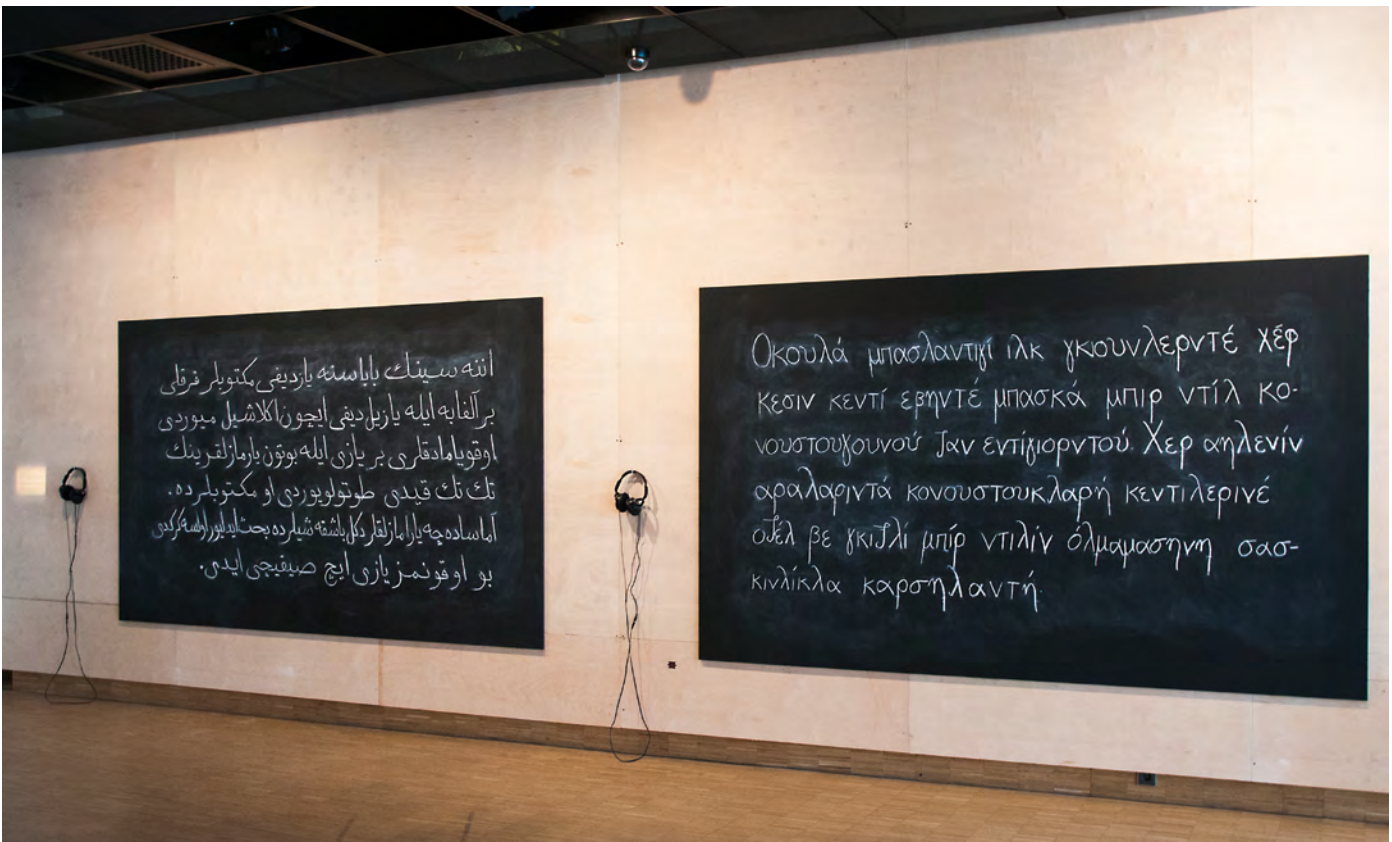 اننه سينك باباسنه يازديغى مكتوبلر فرقلى
بر آلفابه ايله يازيلديغى ايچون اكلاشيل ميوردى
اوقوياماد قلرى بر يازى ايله بوتون يارمازلقرينك
تك تك قيدى طوتولويوردى او مكتوبلرده.
آما ساده چه يارامازلقلر دكل باشقه شيلرده بحث ايديليور اولسه كركدى
بو اوقونمز يازى ايچ صيقيجى ايدى.
Οκουλά μπασλαντιγί ιλκ γκουνλερντέ χέρ
κεσιν κεντί εβηντέ μπασκά μπιρ ντίλ κο-
νουστουγουνού ζαν εντίγιορντού. Χερ αηλενίν
αραλαριντά κονουστουκλαρή κεντιλερινέ
οζέλ βε γκιζλί μπίρ ντιλίν όλμαμασηνη σασ-
κινλίκλα καρσηλαντή.